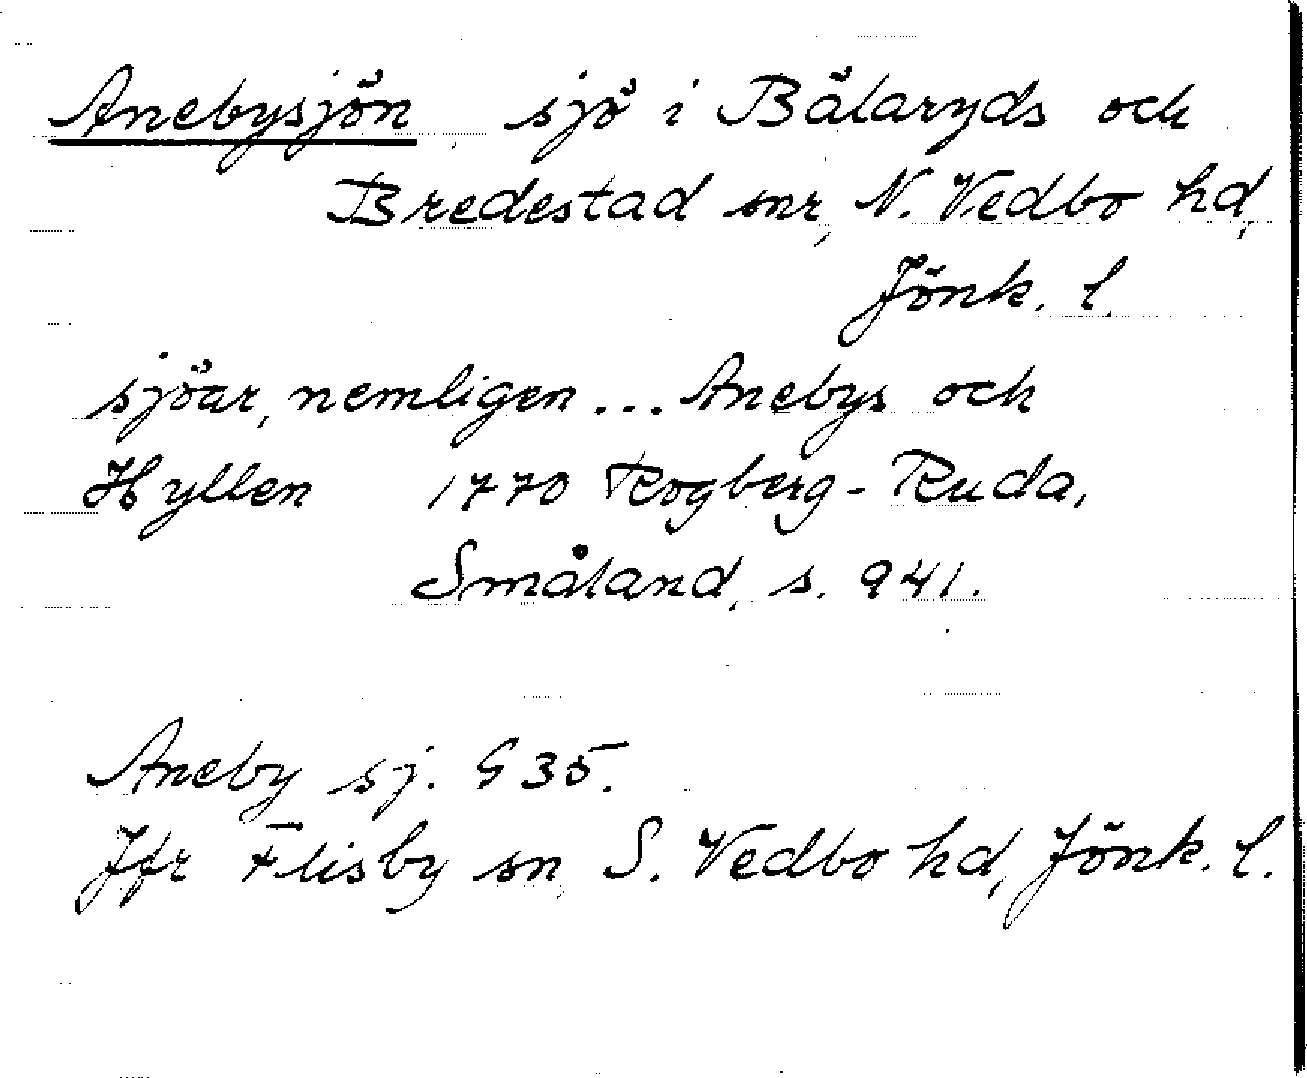 Anebysjön sjö i Bälaryds och
Bredestad snr, N. Vedbo hd,
Jönk. l.
sjöar, nemligen... Anebys och
Hyllen 1770 Rogberg-Ruda,
Småland, s. 941.
Aneby sj. G 35.
Jfr Flisby sn, S. Vedbo hd, Jönk. l.